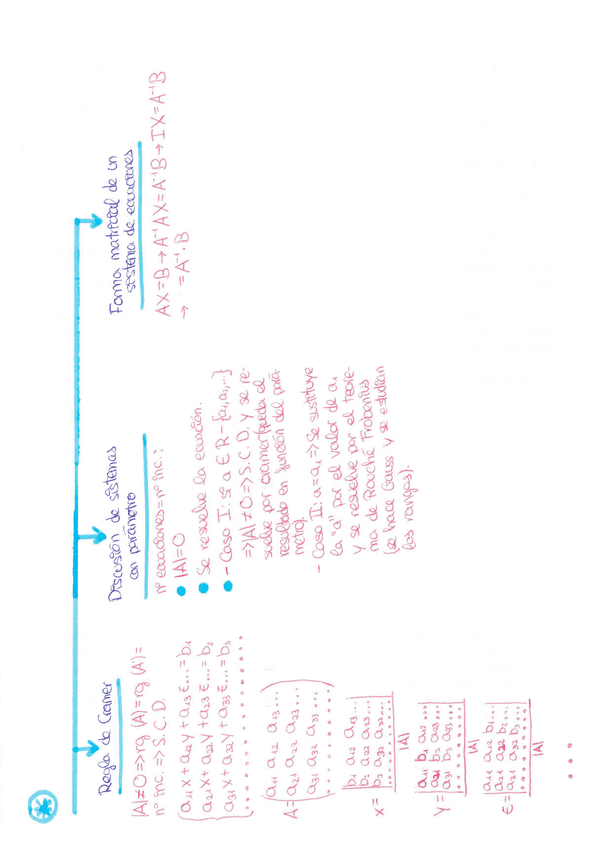 Regla de Cramer
|A|≠0 ⇒ rg (A) = rg (A') =
nº inc. ⇒ S.C.D.
a₁₁x + a₁₂y + a₁₃z... = b₁
a₂₁x + a₂₂y + a₂₃z... = b₂
a₃₁x + a₃₂y + a₃₃z... = b₃
. . . . . . . . . . . .
A = ( a₁₁ a₁₂ a₁₃ ...
a₂₁ a₂₂ a₂₃ ...
a₃₁ a₃₂ a₃₃ ... )
. . . . . . . .
x = | b₁ a₁₂ a₁₃...
b₂ a₂₂ a₂₃...
b₃ a₃₂ a₃₃... |
. . . . . . .
|A|
y = | a₁₁ b₁ a₁₃ ...
a₂₁ b₂ a₂₃ ...
a₃₁ b₃ a₃₃ ... |
. . . . . . .
|A|
z = | a₁₁ a₁₂ b₁...
a₂₁ a₂₂ b₂...
a₃₁ a₃₂ b₃... |
. . . . . . .
|A|
. . .
Discusión de sistemas
con parámetro
nº ecuaciones = nº inc.:
• |A|=0
• Se resuelve la ecuación.
• - Caso I: si a ∈ R - {a₁,a₂,...}
⇒ |A| ≠ 0 ⇒ S.C.D. y se re-
suelve por cramer (queda el
resultado en función del pará-
metro).
- Caso II: a = a₁ ⇒ Se sustituye
la "a" por el valor de a₁
y se resuelve por el teore-
ma de Rouché Frobenius
(se hace Gauss y se estudian
los rangos).
Forma matricial de un
sistema de ecuaciones
AX = B → A⁻¹AX = A⁻¹B → IX = A⁻¹B
→ = A⁻¹·B